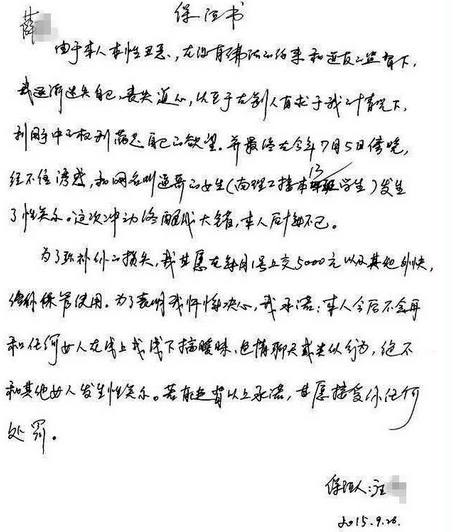 保证书
薛
由于本人本性丑恶,在没有佛法的约束和道友的监督下,
我逐渐迷失自己,丧失道心,以至于在别人有求于我的情况下,
利用手中的权利满足自己的欲望。并最终在今年7月5日傍晚,
经不住诱惑,和网名叫逼哥的女生(南理工 13 学生)发生
了性关系。这次冲动终酿成大错,本人后悔不已。
为了弥补你的损失,我甘愿在每月1号上交5000元以及其他外快,
给你保管使用。为了表明我忏悔决心,我承诺:本人今后不会再
和任何女人在线上或线下搞暧昧、色情聊天或类似行为,绝不
和其他女人发生性关系。若有违背以上承诺,甘愿接受你任何
处罚。
保证人:汪
2015.9.28.